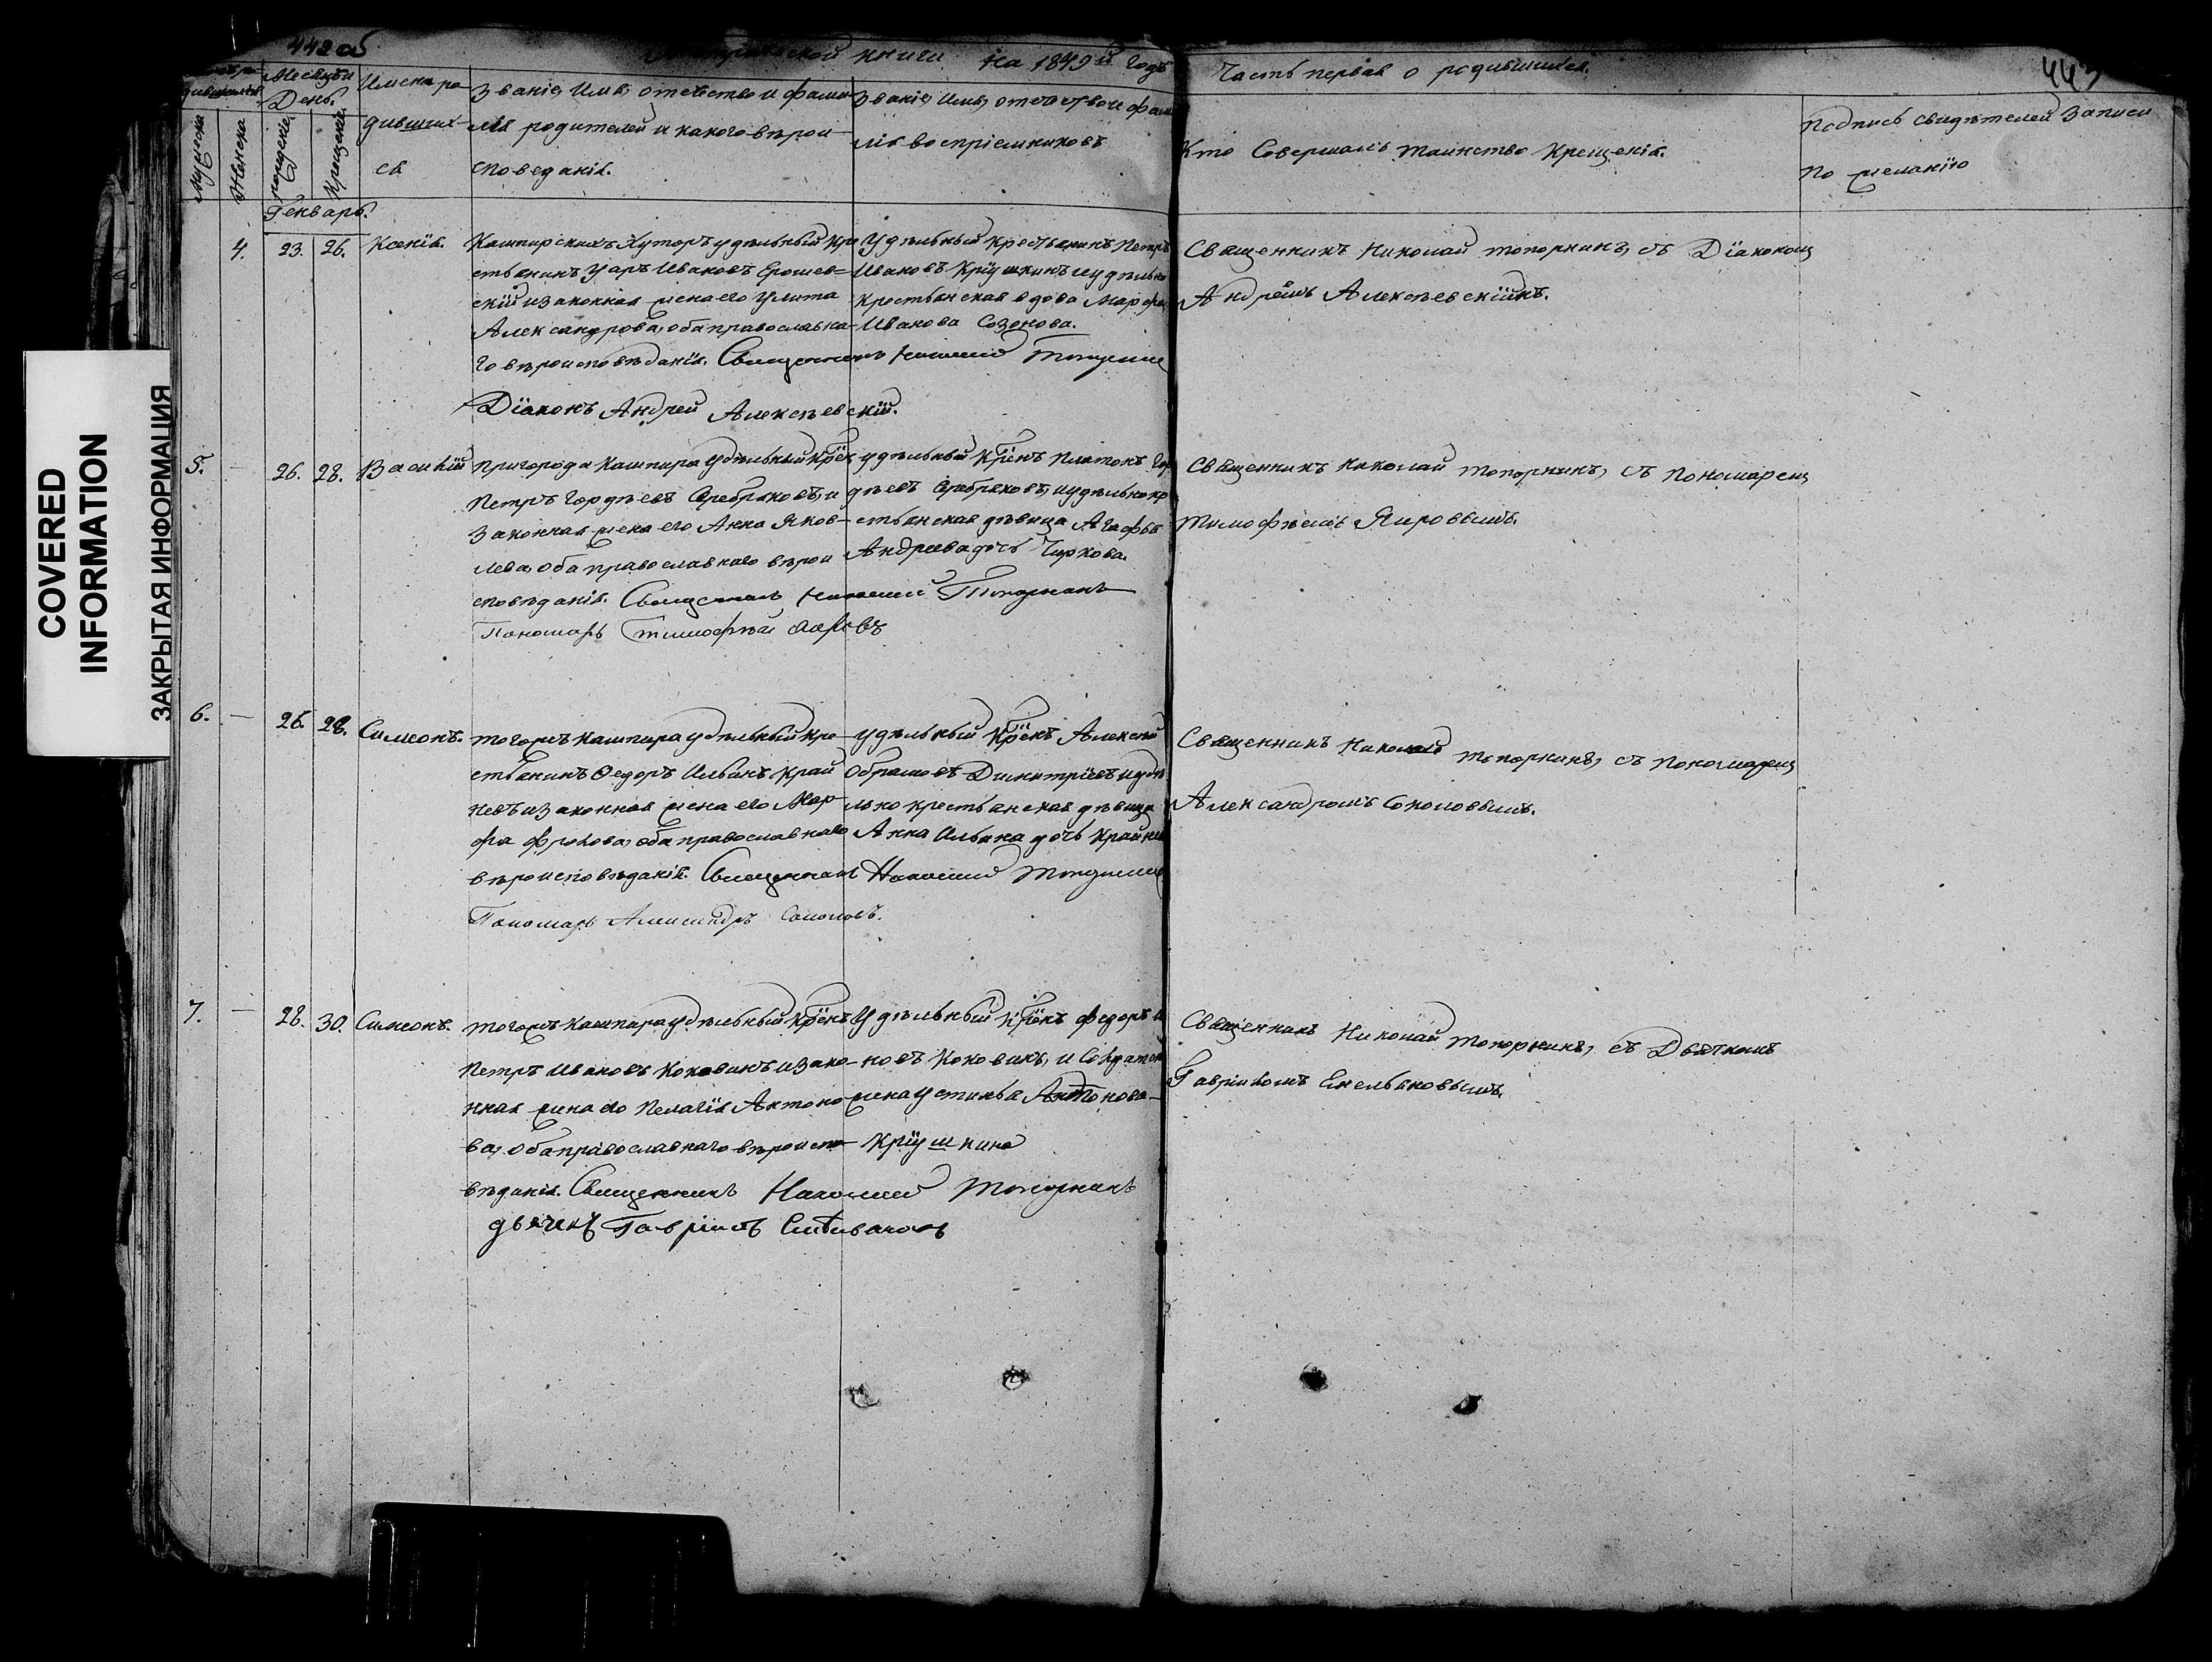 442 об
443
книги на 1849й Годъ
Часть первая о родившихся.
Месяцъ и День.
Мужеска
Женска
рожденiе
Крещенiе
Имена ро
дивших
ся
Званiе, Имя, отечество и фами
лiя родителей и какого верои
споведанiя.
Званiе, Имя, отечество и фами
лiя воспрiемниковъ
Кто Совершалъ таинство Крещенiя.
Подпись свидѣтелей Записи
по желанiю
Генварь.
4. 23. 26. Ксенiя.
Кашпирскихъ Хуторъ удѣльный Кре
стьянинъ Уаръ Ивановъ Ерошев=
скiй и законная жена его Улита
Александрова, оба православна
го вѣроисповѣданiя. Священникъ Николай Топорнинъ
Дiаконъ Андрей Алексѣевскiй.
Удѣльный Крестьянинъ Петръ
Ивановъ Крiушкинъ и удѣльно
крестьянская вдова Марфа
Иванова Созонова.
Священникъ Николай Топорнинъ, съ Дiакономъ
Андреемъ Алексѣевскимъ.
5. — 26. 28. Василiй
пригорода Кашпира Удѣльный Крен
Петръ Гордѣевъ Серебряковъ, и
Законная жена его Анна Яков-
лева, оба православнаго вѣрои
споведанiя. Священникъ Николай Топорнинъ
Пономарь Тимофѣй Яировъ
удѣльный Кренъ Платонъ Гор
дѣевъ Серебряковъ, и удѣльнокре
стьянская дѣвица Агафья
Андреева дочь Чиркова.
Священникъ Николай Топорнинъ, съ Пономаремъ
Тимофѣемъ Яировымъ.
6. — 26. 28. Симеонъ.
тогожъ Кашпира удѣльный Кре-
стьянинъ Ѳедоръ Ильинъ Край
невъ и законная жена его Мар-
фа Фролова, оба православнаго
вѣроисповѣданiя. Священникъ Николай Топорнинъ
Пономарь Александръ Соколовъ.
удѣльный Кренъ Алексѣй
Дмитрiевъ и удѣ
льно крестьянская дѣвица
Анна Ильина дочь Крайнева
Священникъ Николай Топорнинъ, съ Пономаремъ
Александромъ Соколовымъ.
7. — 28. 30. Симеонъ.
тогожъ Кашпира удѣльный Кренъ
Петръ Ивановъ Коковинъ и зако-
нная жена его Пелагiя Антоно
ва, оба православнаго вѣроиспо
вѣданiя. Священникъ Николай Топорнинъ
дьячекъ Гаврiилъ Емельяновъ
Удѣльный Кренъ Федоръ И
новъ Коковинъ, и Солдатская
жена Устинья Антонова
Крiушкина
Священникъ Николай Топорнинъ, съ Дьячкомъ
Гаврiиломъ Емельяновымъ.
COVERED
INFORMATION
ЗАКРЫТАЯ ИНФОРМАЦИЯ